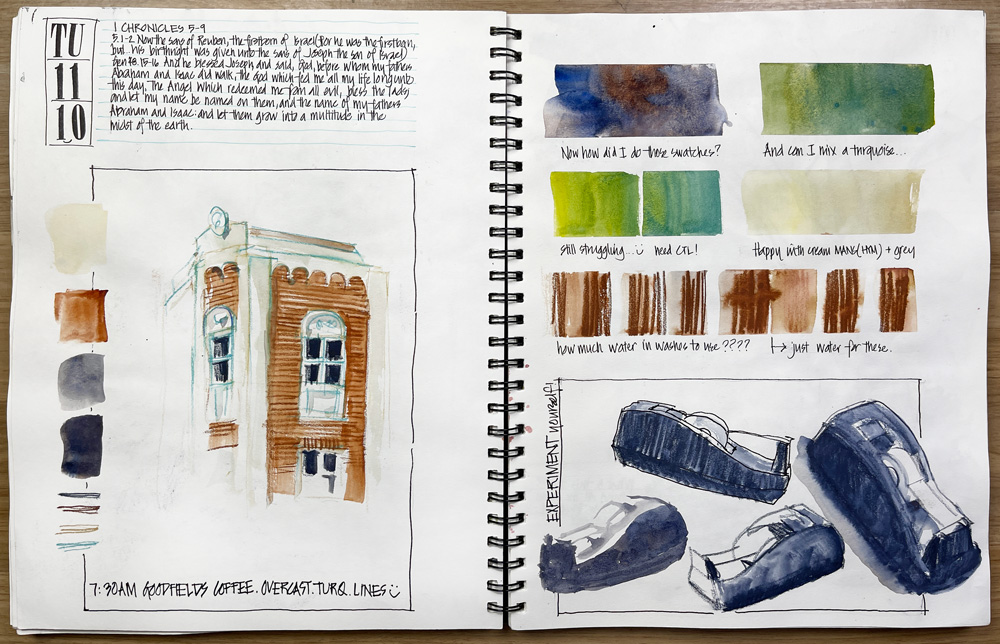 TU
11
10
1 CHRONICLES 5-9
5.1-2 Now the sons of Reuben, the firstborn of Israel (for he was the firstborn,
but... his birthright was given unto the sons of Joseph the son of Israel)
Gen 48.15-16 And he blessed Joseph and said, God, before whom my fathers
Abraham and Isaac did walk, the God which fed me all my life long unto
this day, The Angel which redeemed me from all evil, bless the lads;
and let my name be named on them, and the name of my fathers
Abraham and Isaac: and let them grow into a multitude in the
midst of the earth.
7:30AM GOODFIELDS COFFEE. OVERCAST. TURQ. LINES
Now how did I do those swatches?
And can I mix a turquoise...
still struggling... need CTL!
Happy with cream MANS(HKM) + grey
how much water in washes to use????
just water for these.
EXPERIMENT yourself!